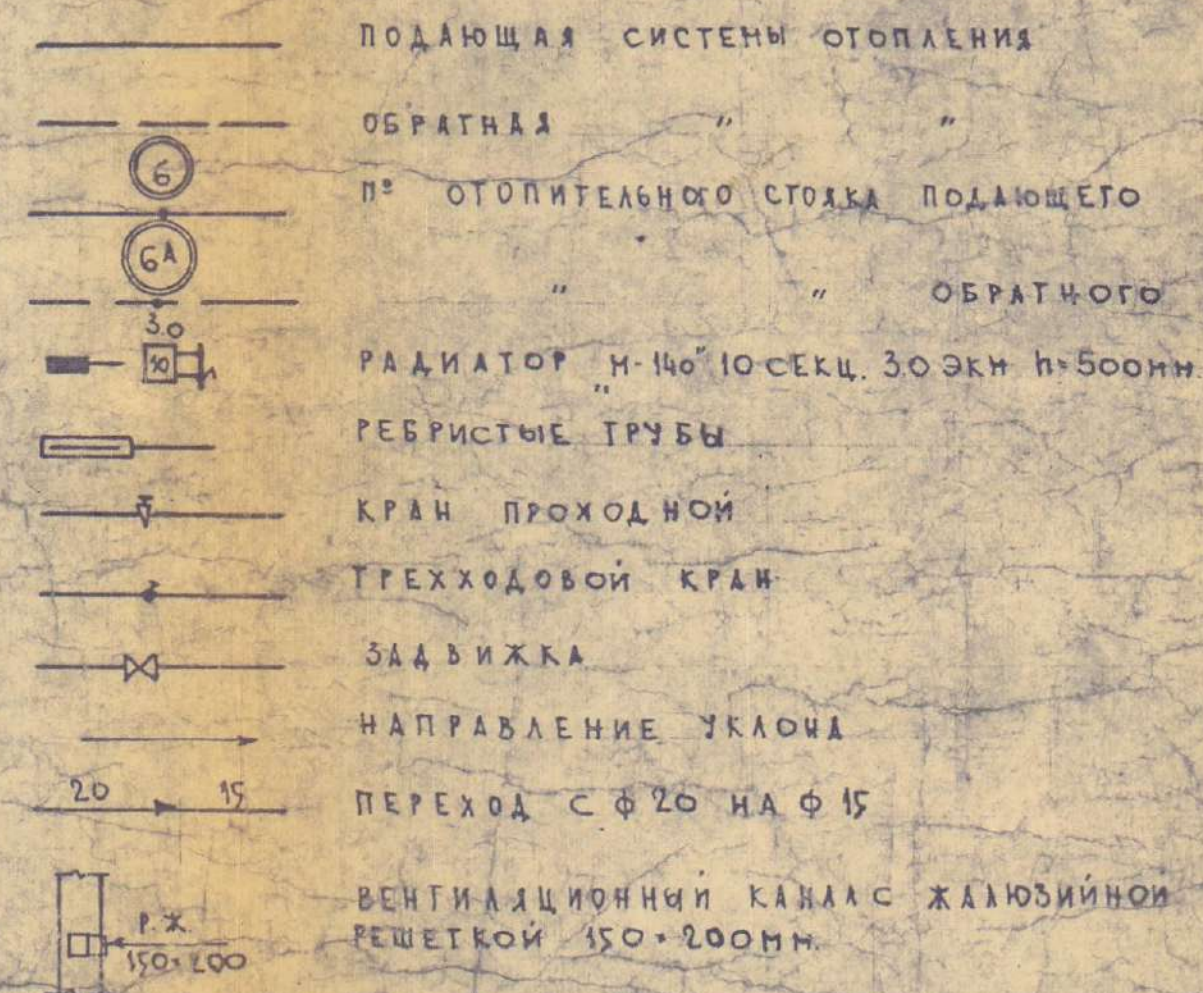 ПОДАЮЩАЯ СИСТЕМЫ ОТОПЛЕНИЯ
ОБРАТНАЯ " "
6
№ ОТОПИТЕЛЬНОГО СТОЯКА ПОДАЮЩЕГО
6А
" " ОБРАТНОГО
3.0
10
РАДИАТОР "М-140" 10 СЕКЦ. 3.0 ЭКМ h=500ММ.
РЕБРИСТЫЕ ТРУБЫ
КРАН ПРОХОДНОЙ
ТРЕХХОДОВОЙ КРАН
ЗАДВИЖКА
НАПРАВЛЕНИЕ УКЛОНА
20 15
ПЕРЕХОД С Ф 20 НА Ф 15
ВЕНТИЛЯЦИОННЫЙ КАНАЛ С ЖАЛЮЗИЙНОЙ
РЕШЕТКОЙ 150×200ММ.
Р.Ж.
150×200